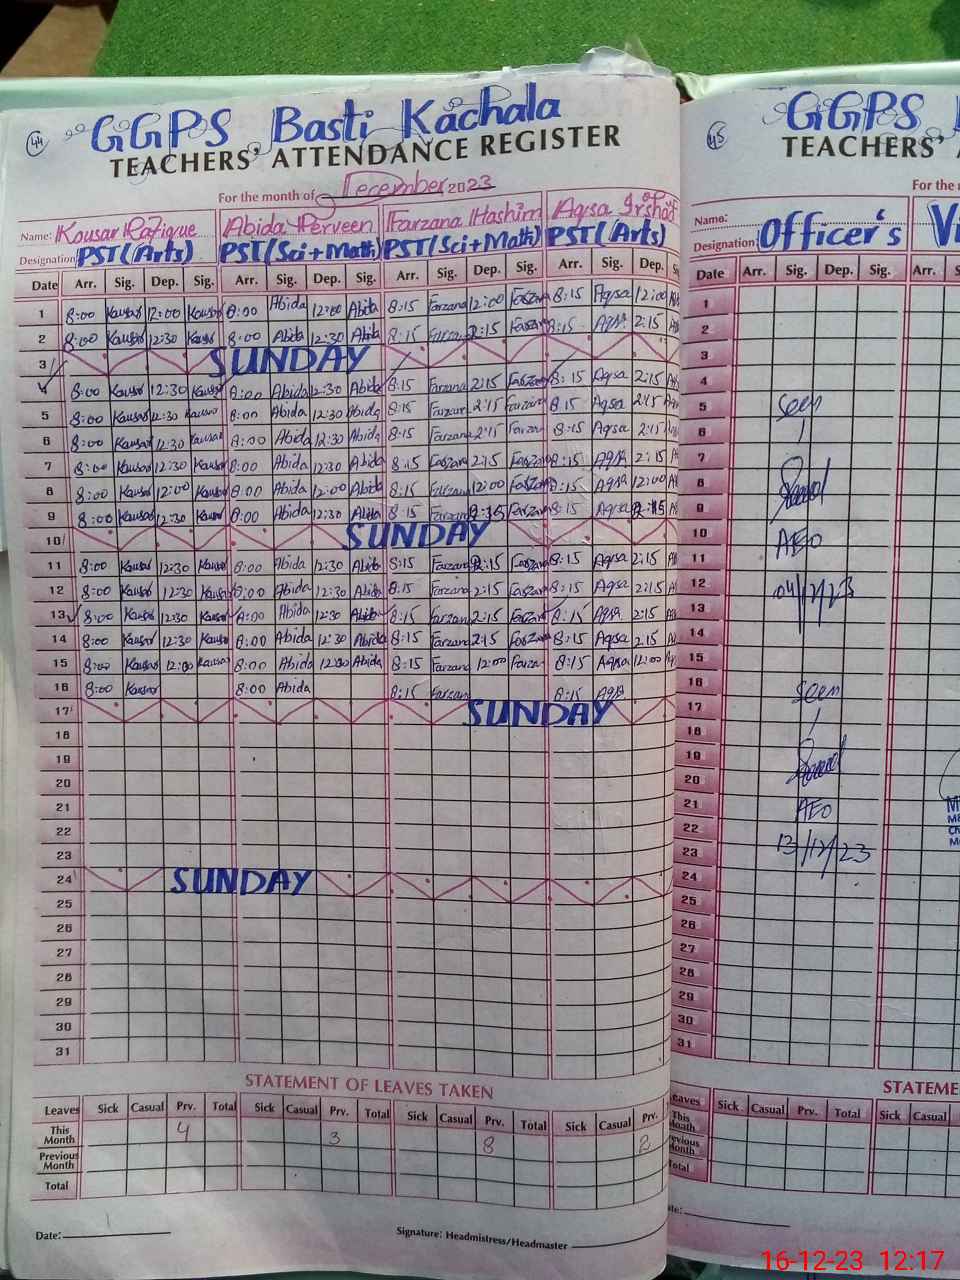 44 GGPS Basti Kachala
TEACHERS' ATTENDANCE REGISTER
For the month of December 2023
Name: Kousar Rafique Abida Perveen Farzana Hashim Aqsa Irshad
Designation PST(Arts) PST(Sci+Math) PST(Sci+Math) PST(Arts)
Date Arr. Sig. Dep. Sig. Arr. Sig. Dep. Sig. Arr. Sig. Dep. Sig. Arr. Sig. Dep.
1 8:00 Kausar 12:00 Kausar 8:00 Abida 12:00 Abida 8:15 Farzana 12:00 Farzana 8:15 Aqsa 12:00
2 8:00 Kausar 12:30 Kausar 8:00 Abida 12:30 Abida 8:15 Farzana 2:15 Farzana 8:15 Aqsa 2:15
3 SUNDAY
4 8:00 Kausar 12:30 Kausar 8:00 Abida 12:30 Abida 8:15 Farzana 2:15 Farzana 8:15 Aqsa 2:15
5 8:00 Kausar 12:30 Kausar 8:00 Abida 12:30 Abida 8:15 Farzana 2:15 Farzana 8:15 Aqsa 2:15
6 8:00 Kausar 12:30 Kausar 8:00 Abida 12:30 Abida 8:15 Farzana 2:15 Farzana 8:15 Aqsa 2:15
7 8:00 Kausar 12:30 Kausar 8:00 Abida 12:30 Abida 8:15 Farzana 2:15 Farzana 8:15 Aqsa 2:15
8 8:00 Kausar 12:00 Kausar 8:00 Abida 12:00 Abida 8:15 Farzana 12:00 Farzana 8:15 Aqsa 12:00
9 8:00 Kausar 12:30 Kausar 8:00 Abida 12:30 Abida 8:15 Farzana 2:15 Farzana 8:15 Aqsa 2:15
10 SUNDAY
11 8:00 Kausar 12:30 Kausar 8:00 Abida 12:30 Abida 8:15 Farzana 2:15 Farzana 8:15 Aqsa 2:15
12 8:00 Kausar 12:30 Kausar 8:00 Abida 12:30 Abida 8:15 Farzana 2:15 Farzana 8:15 Aqsa 2:15
13 8:00 Kausar 12:30 Kausar 8:00 Abida 12:30 Abida 8:15 Farzana 2:15 Farzana 8:15 Aqsa 2:15
14 8:00 Kausar 12:30 Kausar 8:00 Abida 12:30 Abida 8:15 Farzana 2:15 Farzana 8:15 Aqsa 2:15
15 8:00 Kausar 12:00 Kausar 8:00 Abida 12:00 Abida 8:15 Farzana 12:00 Farzana 8:15 Aqsa 12:00
16 8:00 Kausar 8:00 Abida 8:15 Farzana 8:15 Aqsa
17 SUNDAY
18
19
20
21
22
23
24 SUNDAY
25
26
27
28
29
30
31
STATEMENT OF LEAVES TAKEN
Leaves Sick Casual Prv. Total Sick Casual Prv. Total Sick Casual Prv. Total Sick Casual Prv.
This Month 4 3 8 2
Previous Month
Total
Date: Signature: Headmistress/Headmaster
45 GGPS
TEACHERS'
For the
Name:
Designation Officer's
Date Arr. Sig. Dep. Sig. Arr.
1
2
3
4
5 Seen
6
7
8
9
10 AEO
11
12 04/12/23
13
14
15
16 Seen
17
18
19
20
21 AEO
22
23 13/12/23
24
25
26
27
28
29
30
31
STATEME
Leaves Sick Casual Prv. Total Sick Casual
This Month
Previous Month
Total
16-12-23 12:17